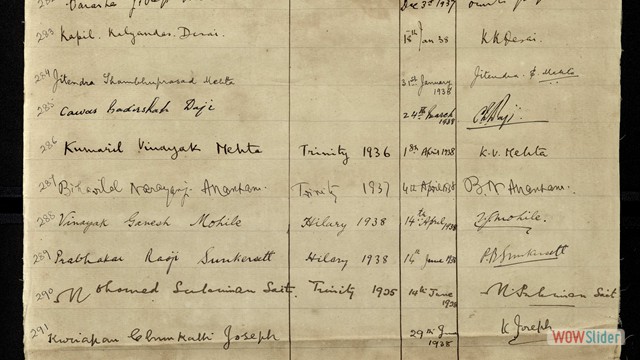 Dec 3rd 1937
283 Kapil Kalyandas Desai. 18th Jan 38 K K Desai.
284 Jitendra Shambhuprasad Mehta 31st January 1938 Jitendra S. Mehta
285 Cawas Daji 24th March 1938
286 Kumaril Vinayak Mehta Trinity 1936 1st April 1938 K. V. Mehta
287 Narayanji Anantani. Trinity 1937 4th April 1938 B N Anantani.
288 Vinayak Ganesh Mohile Hilary 1938 14th April 1938 Mohile.
289 Prabhakar Raoji Sunkersett Hilary 1938 14th June 1938 P. R Sunkersett
290 Mohomed Sulaiman Sait. Trinity 1935 14th June 1938 M Sulaiman Sait
291 Kuriapan Joseph 29th 1938 K Joseph
WOWSlider